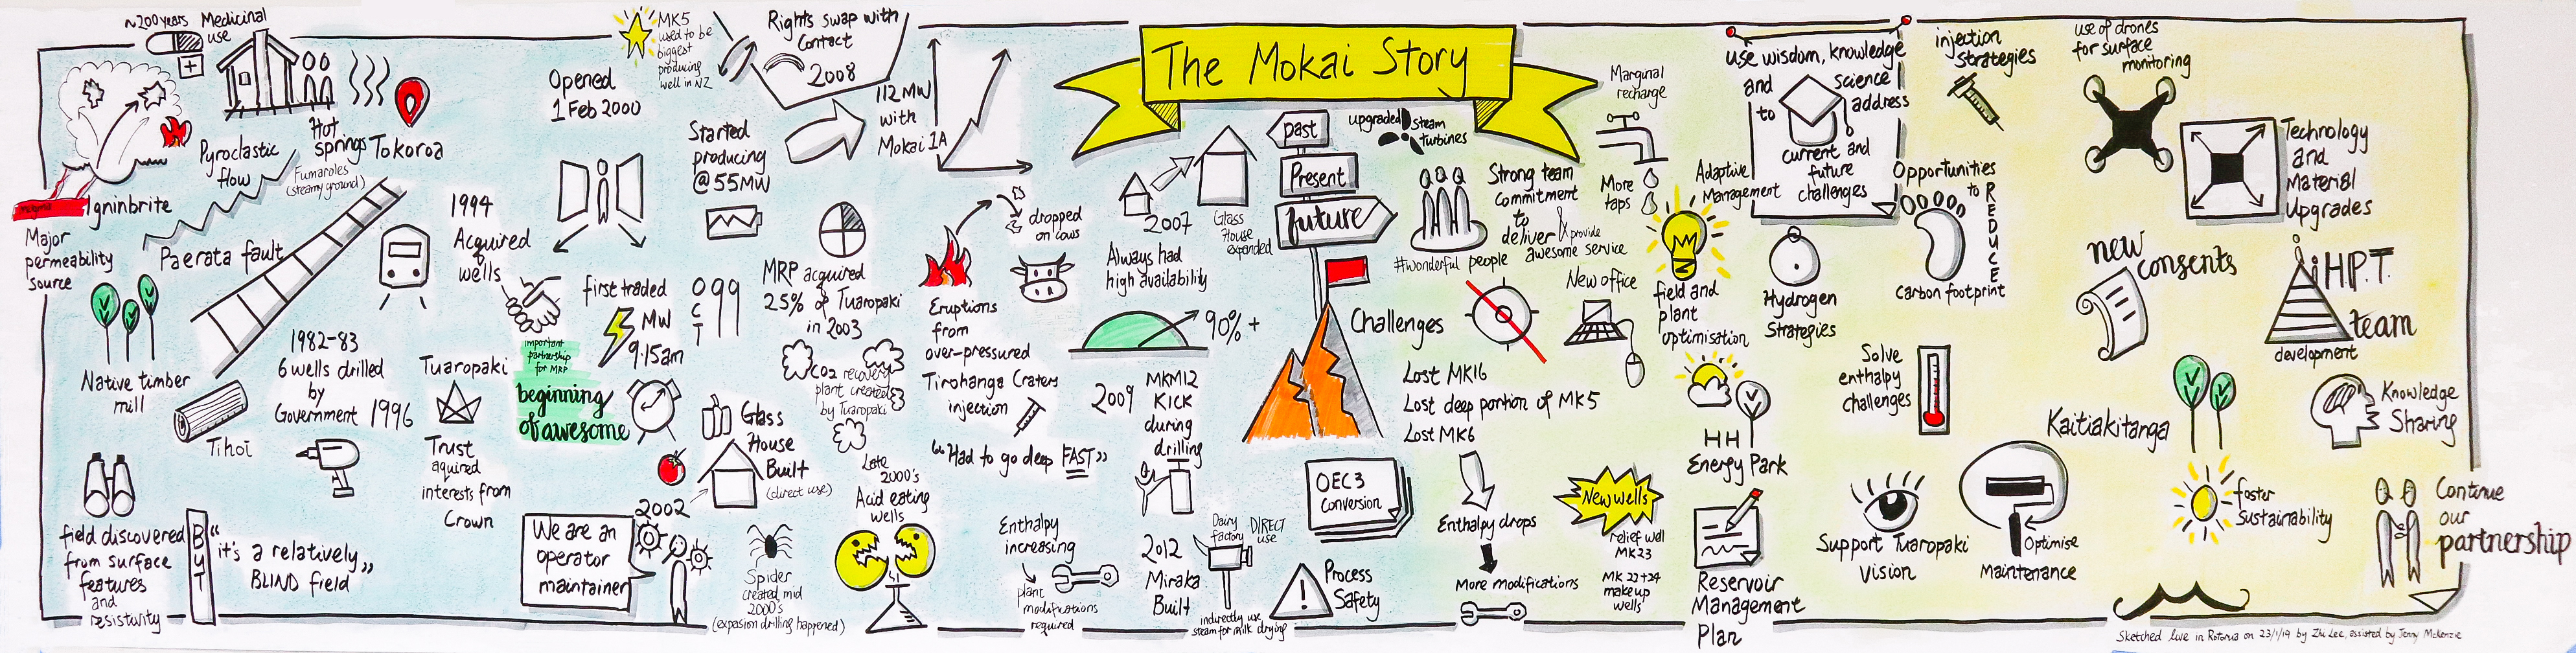 ~200 years Medicinal
use
Pyroclastic
flow
Hot
springs
Fumaroles
(steamy ground)
Tokoroa
Igninbrite
Major
permeability
source
Paerata fault
Native timber
mill
Tihoi
field discovered
from surface
features
and
resisturity
BUT
"it's a relatively"
BLIND field
1982-83
6 wells drilled
by
Government
1996
1994
Acquired
wells
Tuaropaki
Trust
aquired
interests from
Crown
Opened
1 Feb 2000
important
partnership
for MRP
beginning
of awesome
first traded
MW
9.15am
OCT
99
MK5
used to be
biggest
producing
well in NZ
Rights swap with
Contact
2008
Started
producing
@ 55MW
112 MW
with
Mokai 1A
MRP acquired
25% of Tuaropaki
in 2003
CO2 recovery
plant created
by Tuaropaki
Glass
House
Built
(direct use)
2002
We are an
operator
maintainer
Spider
created mid
2000's
(expasion drilling happened)
Late
2000's
Acid eating
wells
dropped
on cows
Eruptions
from
over-pressured
Tirohanga Craters
injection
"Had to go deep FAST"
Enthalpy
increasing
plant
modifications
required
The Mokai Story
2007
Glass
House
expanded
Always had
high availability
90% +
2009
MKM12
KICK
during
drilling
2012
Miraka
Built
Dairy
factory
DIRECT
use
indirectly use
steam for milk drying
past
Present
future
upgraded steam
turbines
Strong team
commitment
to
deliver & provide
awesome service
#wonderful people
Challenges
Lost MK16
Lost deep portion of MK5
Lost MK6
OEC3
Conversion
Process
Safety
Enthalpy drops
More modifications
Marginal
recharge
More
taps
New office
New wells
relief well
MK23
MK 22+24
make up
wells
Adaptive
Management
field and
plant
optimisation
HH
Energy Park
Reservoir
Management
Plan
use wisdom, knowledge
and science
to address
current and
future
challenges
Hydrogen
Strategies
injection
strategies
Opportunities
to
REDUCE
Carbon footprint
Solve
enthalpy
challenges
Support Tuaropaki
Vision
Optimise
Maintenance
use of drones
for surface
monitoring
Technology
and
Material
Upgrades
new
consents
H.P.T.
team
development
Kaitiakitanga
Knowledge
Sharing
foster
Sustainability
Continue
our
partnership
Sketched live in Rotorua on 23/1/19 by Zhi Lee, assisted by Jenny McKenzie